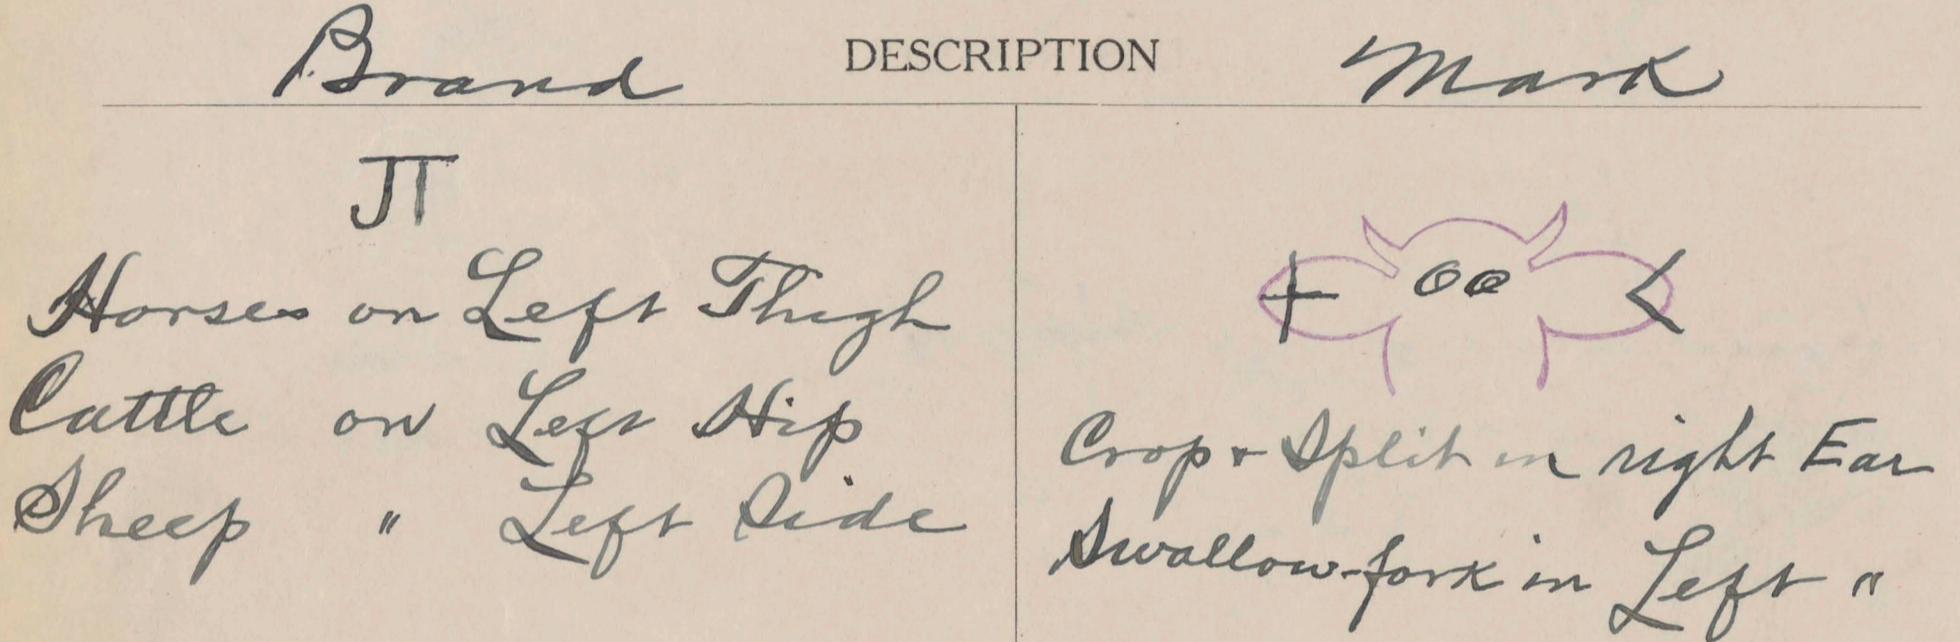 Brand DESCRIPTION Mark
JT
Horses on Left Thigh
Cattle on Left Hip
Sheep " Left Side
Crop & Split in right Ear
Swallow-fork in Left "